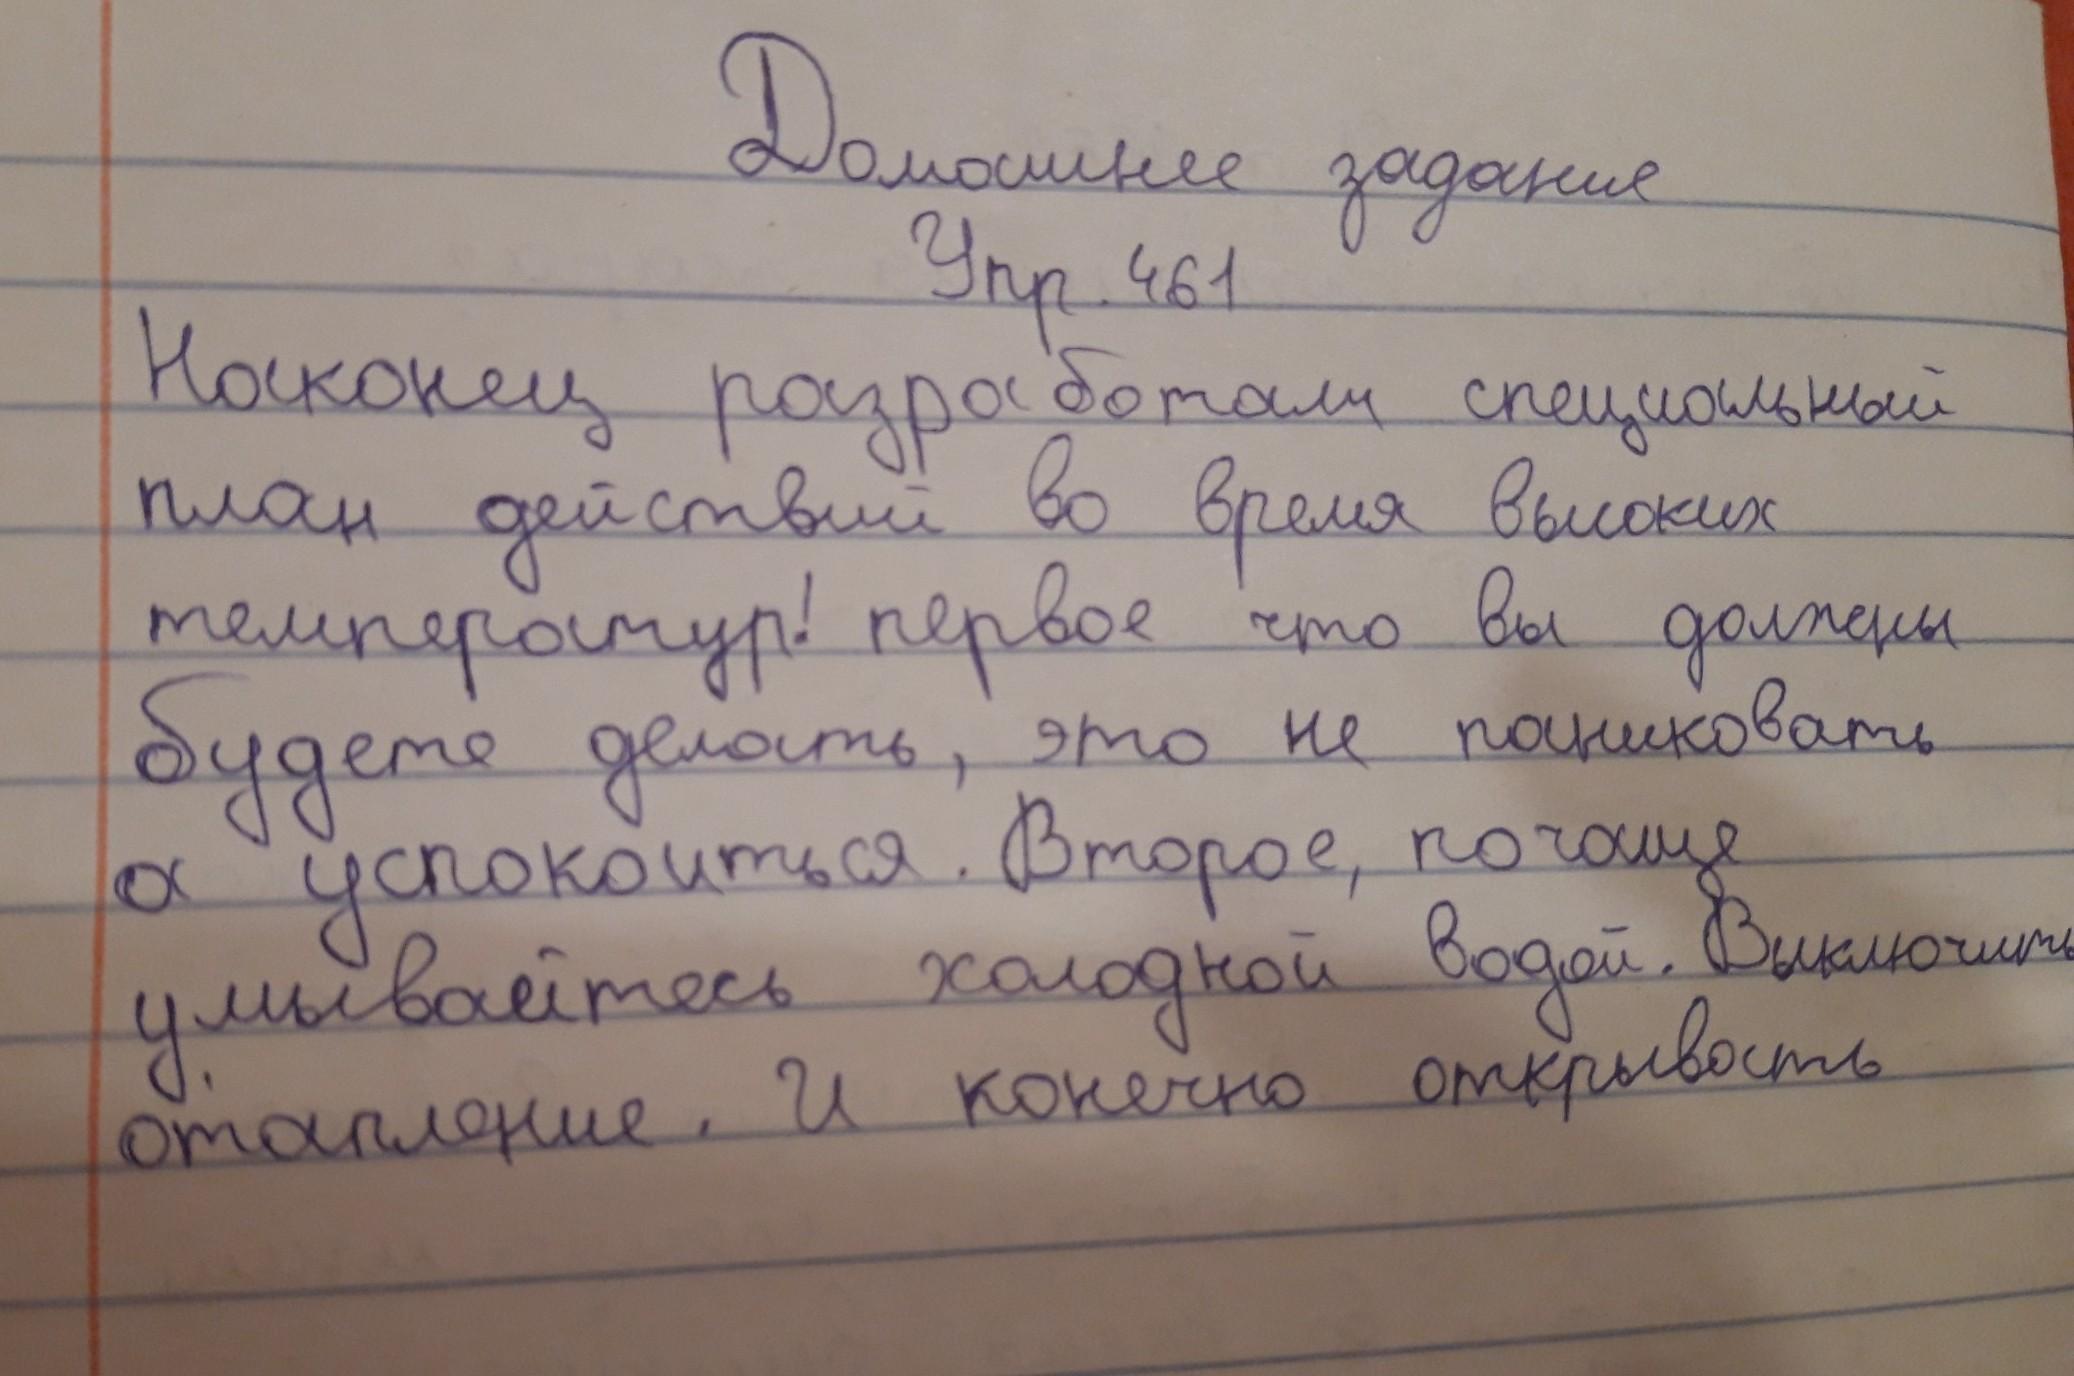 Домашнее задание
Упр. 461
Наконец разработали специальный
план действий во время высоких
температур! первое что вы должны
будете делать, это не паниковать
а успокоиться. Второе, почаще
умывайтесь холодной водой. Выключить
отапление. И конечно открывать